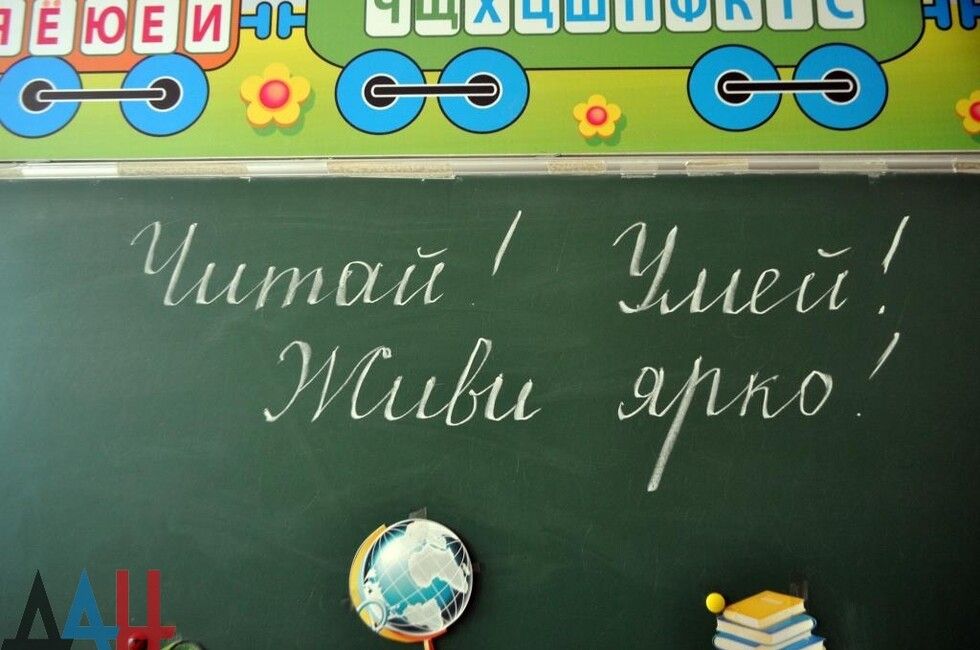 Я Ё Ю Е И Ч Щ Х Ц Ш П Ф К Т С
Читай! Умей!
Живи ярко!
ДАН